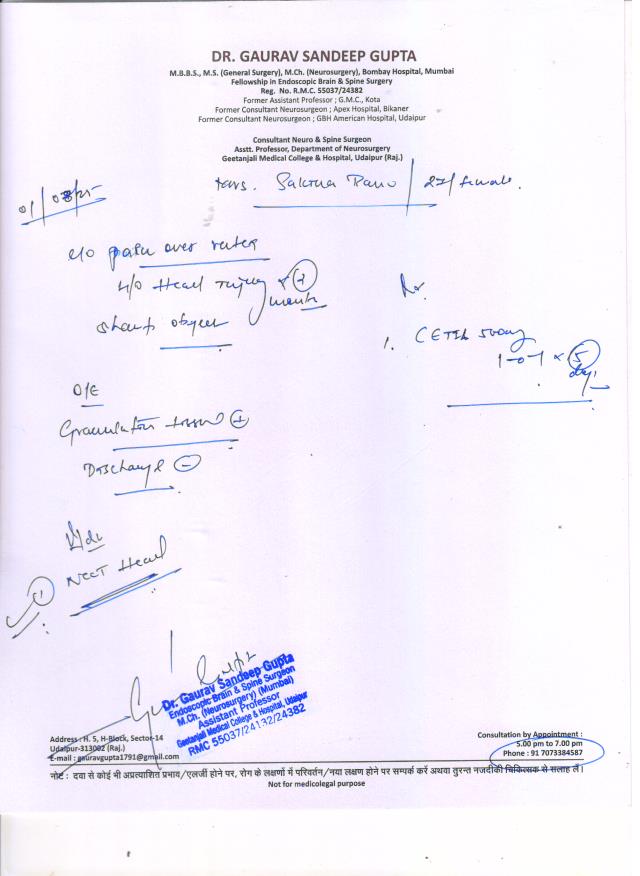 DR. GAURAV SANDEEP GUPTA
M.B.B.S., M.S. (General Surgery), M.Ch. (Neurosurgery), Bombay Hospital, Mumbai
Fellowship in Endoscopic Brain & Spine Surgery
Reg. No. R.M.C. 55037/24382
Former Assistant Professor ; G.M.C., Kota
Former Consultant Neurosurgeon ; Apex Hospital, Bikaner
Former Consultant Neurosurgeon ; GBH American Hospital, Udaipur
Consultant Neuro & Spine Surgeon
Asstt. Professor, Department of Neurosurgery
Geetanjali Medical College & Hospital, Udaipur (Raj.)
27/female.
c/o pain over vertex
H/O Head Injury x 2 month
sharp object
1. CETIL 500mg
1-0-1 x 5 days
O/E
Granulation tissue +
Discharge -
NCCT Head
Dr. Gaurav Sandeep Gupta
Endoscopic Brain & Spine Surgeon
M.Ch. (Neurosurgery) (Mumbai)
Assistant Professor
Geetanjali Medical College & Hospital, Udaipur
RMC 55037/24132/24382
Address : H. 5, H-Block, Sector-14
Udaipur-313002 (Raj.)
E-mail : gauravgupta1791@gmail.com
Consultation by Appointment :
5.00 pm to 7.00 pm
Phone : 91 7073384587
नोट : दवा से कोई भी अप्रत्याशित प्रभाव/एलर्जी होने पर, रोग के लक्षणों में परिवर्तन/नया लक्षण होने पर सम्पर्क करें अथवा तुरन्त नजदीकी चिकित्सक से सलाह लें।
Not for medicolegal purpose